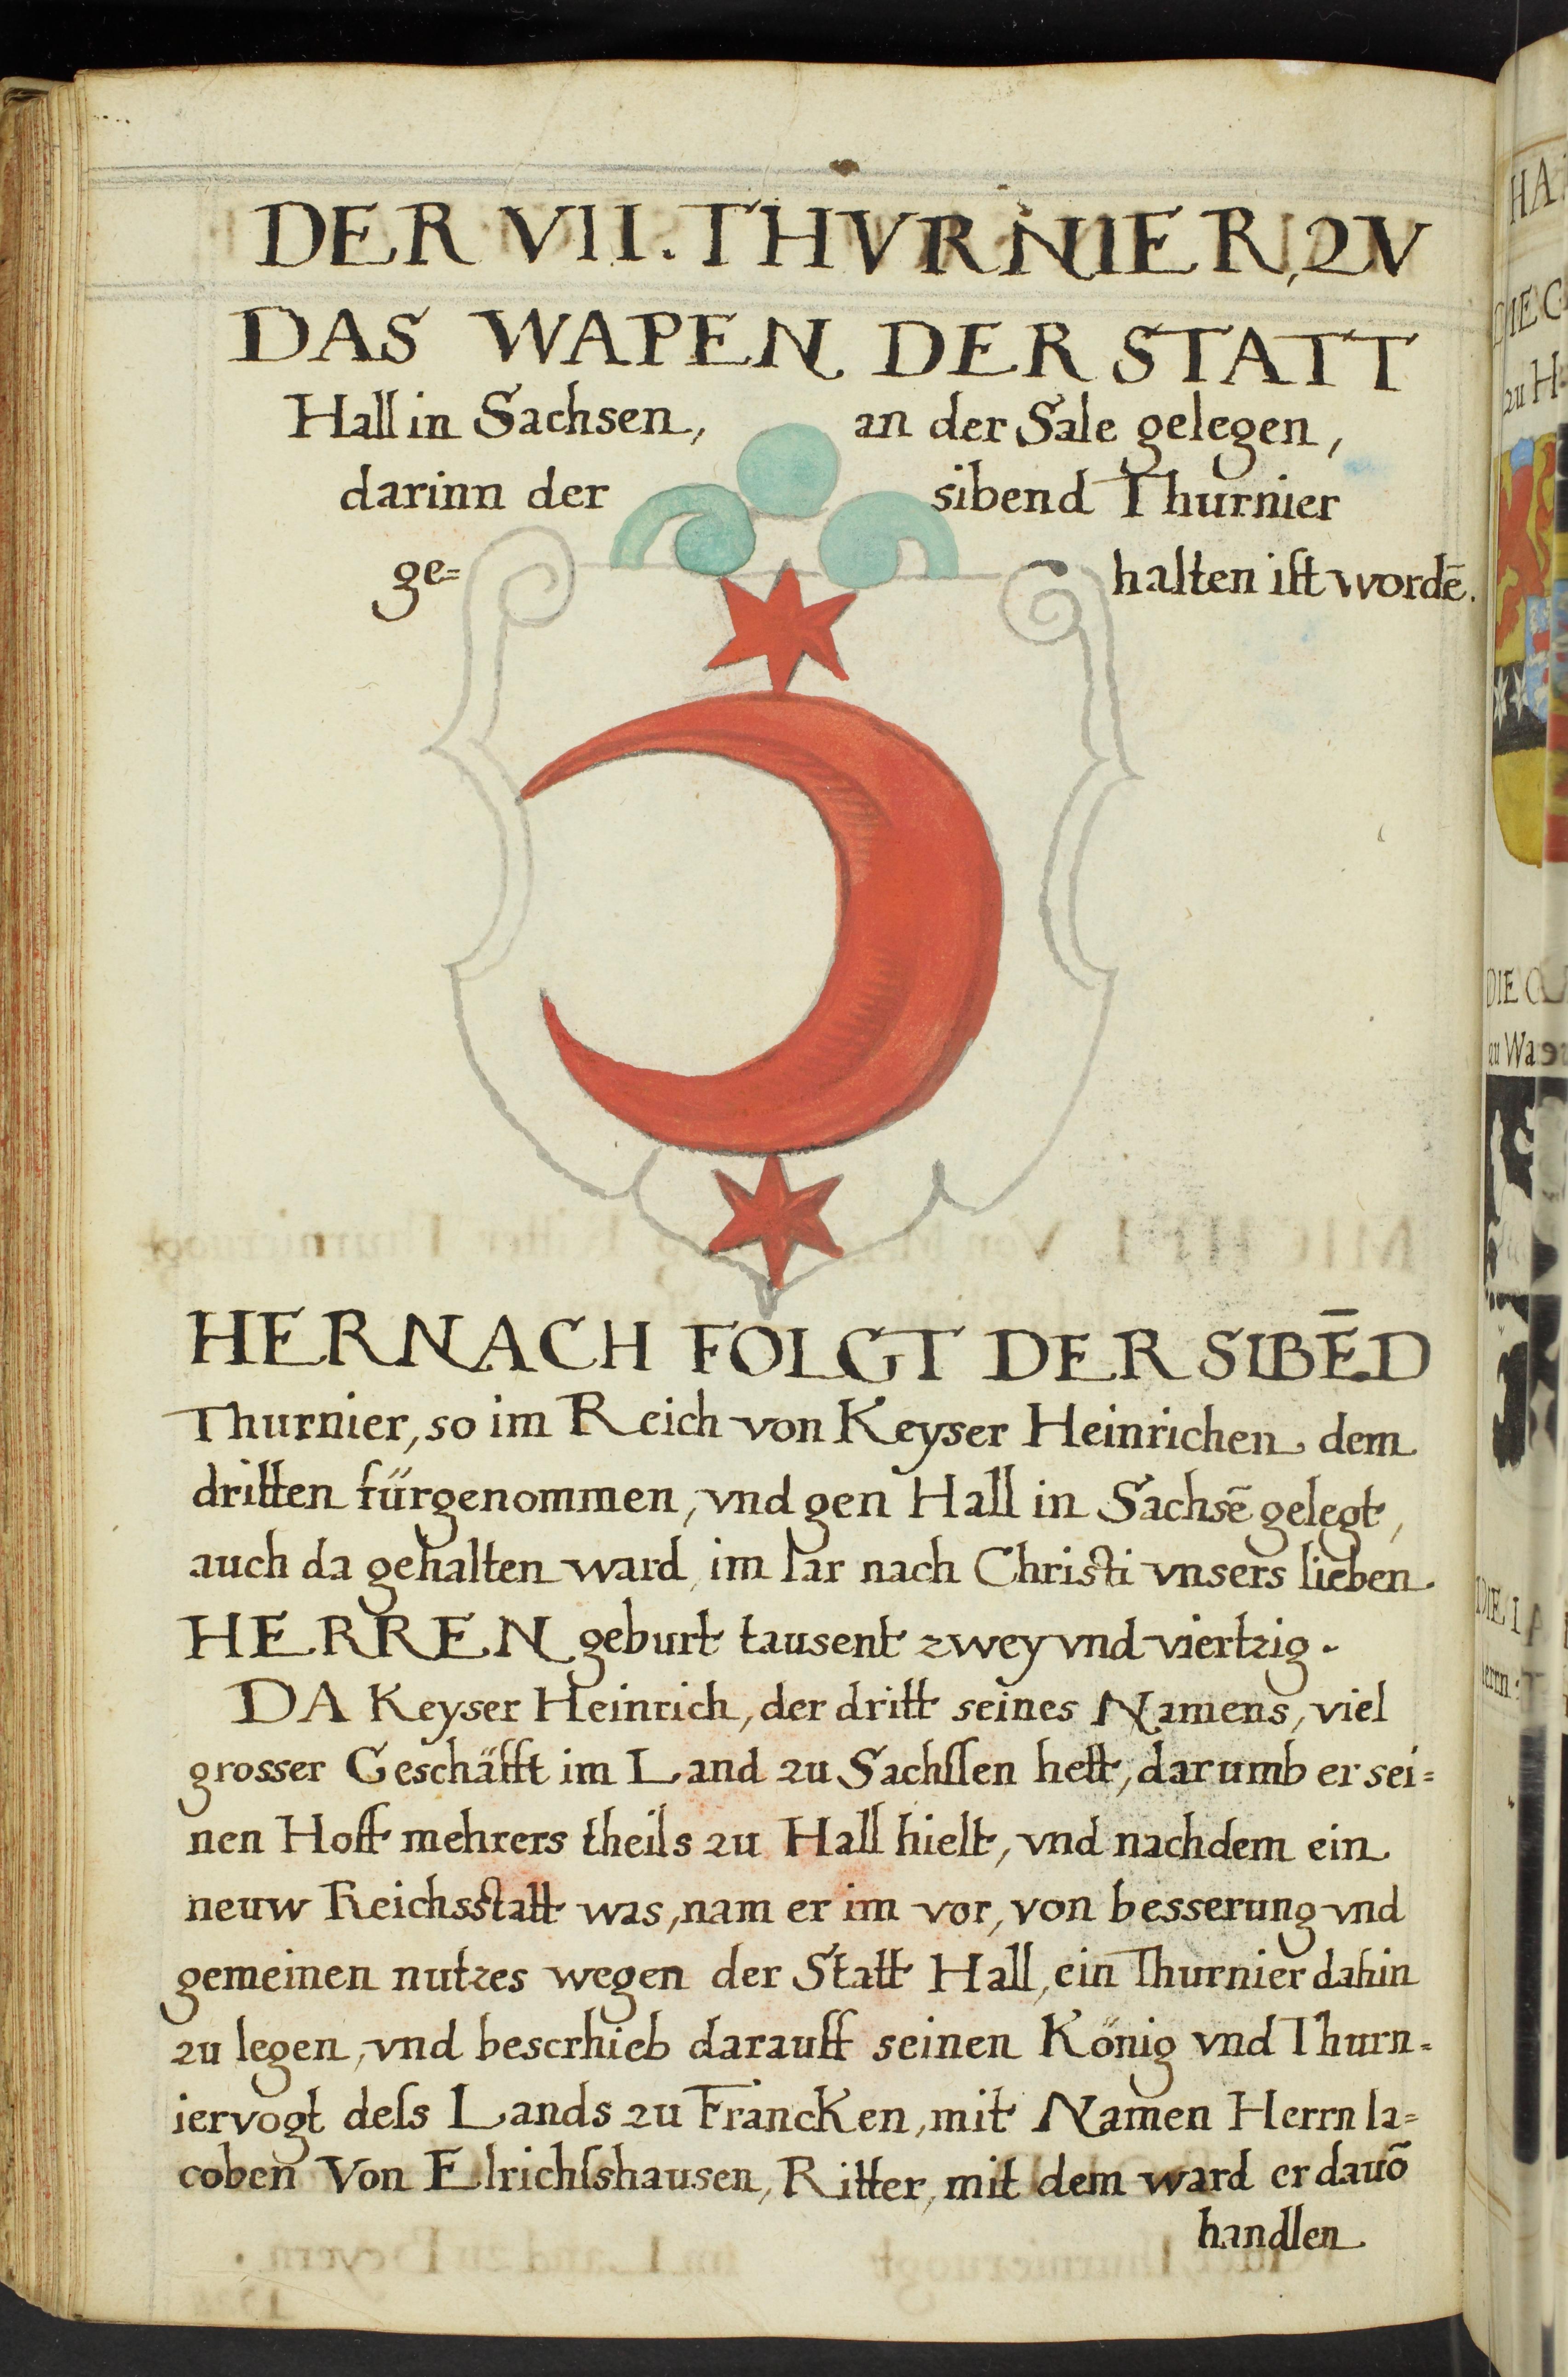 DER VII. THVRNIER, ZV
DAS WAPEN DER STATT
Hall in Sachsen, an der Sale gelegen,
darinn der sibend Thurnier
ge= halten ist wordē.
HERNACH FOLGT DER SIBĒD
Thurnier, so im Reich von Keyser Heinrichen dem
dritten fürgenommen, vnd gen Hall in Sachsē gelegt,
auch da gehalten ward, im Iar nach Christi vnsers lieben
HERREN geburt tausent zwey vnd viertzig.
DA Keyser Heinrich, der dritt seines Namens, viel
grosser Geschäfft im Land zu Sachſſen hett, darumb er sei=
nen Hoff mehrers theils zu Hall hielt, vnd nachdem ein
neuw Reichsstatt was, nam er im vor, von besserung vnd
gemeinen nutzes wegen der Statt Hall, ein Thurnier dahin
zu legen, vnd bescrhieb darauff seinen König vnd Thurn=
iervogt deſs Lands zu Francken, mit Namen Herrn Ia=
coben Von Elrichſshausen, Ritter, mit dem ward er dauō
handlen